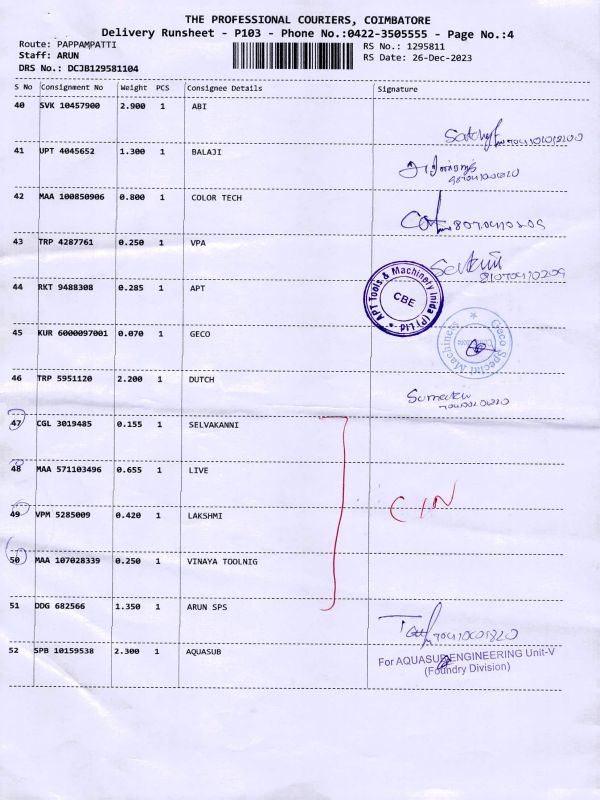 THE PROFESSIONAL COURIERS, COIMBATORE
Delivery Runsheet - P103 - Phone No.:0422-3505555 - Page No.:4
Route: PAPPAMPATTI
Staff: ARUN
DRS No.: DCJB129581104
RS No.: 1295811
RS Date: 26-Dec-2023
S No Consignment No Weight PCS Consignee Details Signature
40 SVK 10457900 2.900 1 ABI
41 UPT 4045652 1.300 1 BALAJI
42 MAA 100850906 0.800 1 COLOR TECH
43 TRP 4287761 0.250 1 VPA
44 RKT 9488308 0.285 1 APT
APT Tools & Machinery Inida (P) Ltd
CBE
45 KUR 6000097001 0.070 1 GECO
Geco Special Machinery
46 TRP 5951120 2.200 1 DUTCH
47 CGL 3019485 0.155 1 SELVAKANNI
48 MAA 571103496 0.655 1 LIVE
49 VPM 5285009 0.420 1 LAKSHMI
C/N
50 MAA 107028339 0.250 1 VINAYA TOOLNIG
51 DDG 682566 1.350 1 ARUN SPS
52 SPB 10159538 2.300 1 AQUASUB
For AQUASUB ENGINEERING Unit-V
(Foundry Division)